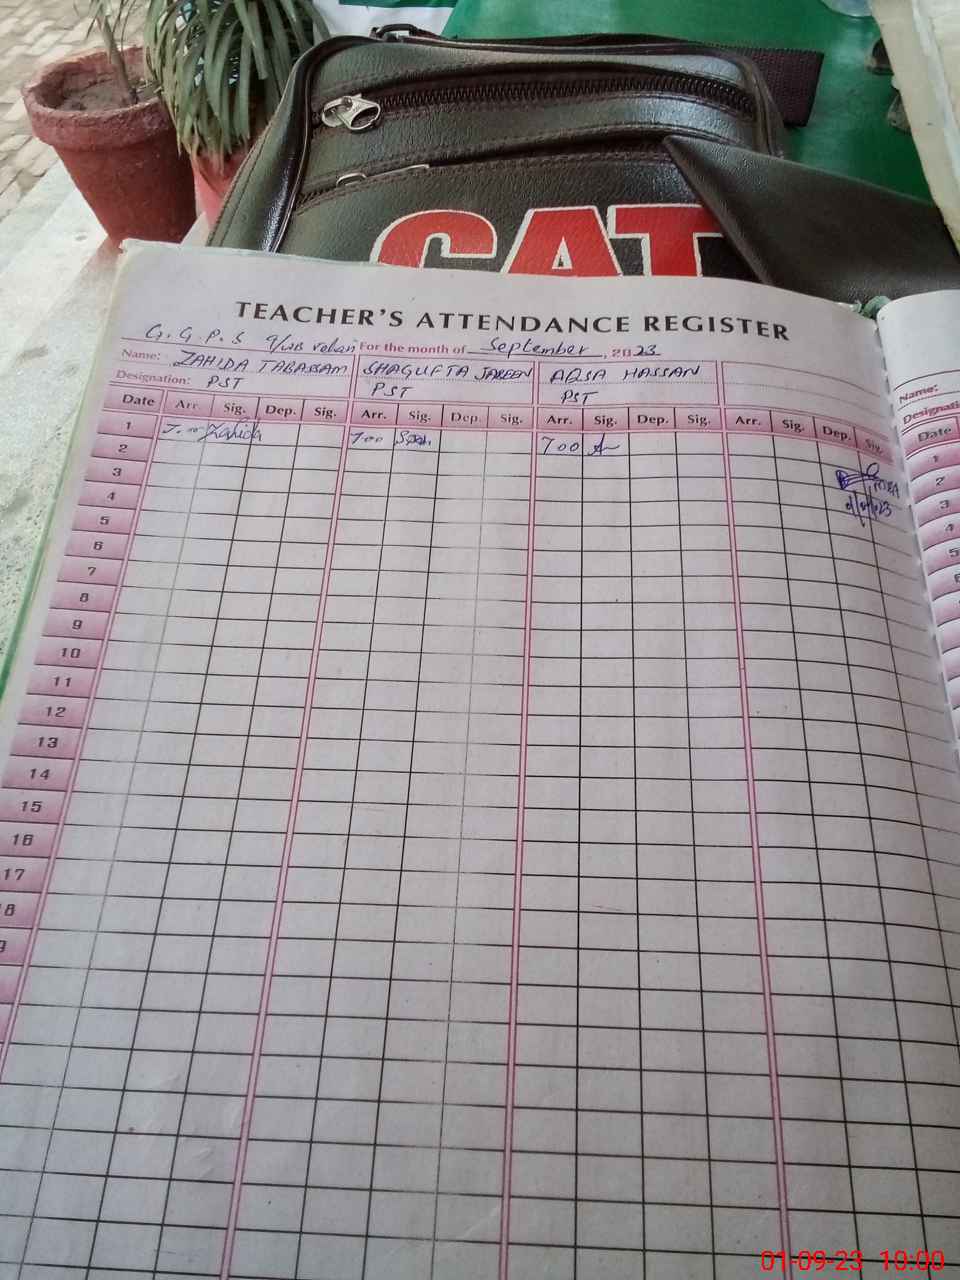 CAT
TEACHER'S ATTENDANCE REGISTER
G.G.P.S For the month of September, 2023
Name: ZAHIDA TABASSAM SHAGUFTA JABEEN AQSA HASSAN
Designation: PST PST PST
Date Arr. Sig. Dep. Sig. Arr. Sig. Dep. Sig. Arr. Sig. Dep. Sig. Arr. Sig. Dep. Sig.
1 7.00 Zahida 700 700
2
3
4
5
6
7
8
9
10
11
12
13
14
15
16
17
Name:
Date
1
2
3
4
5
01-09-23 10:00